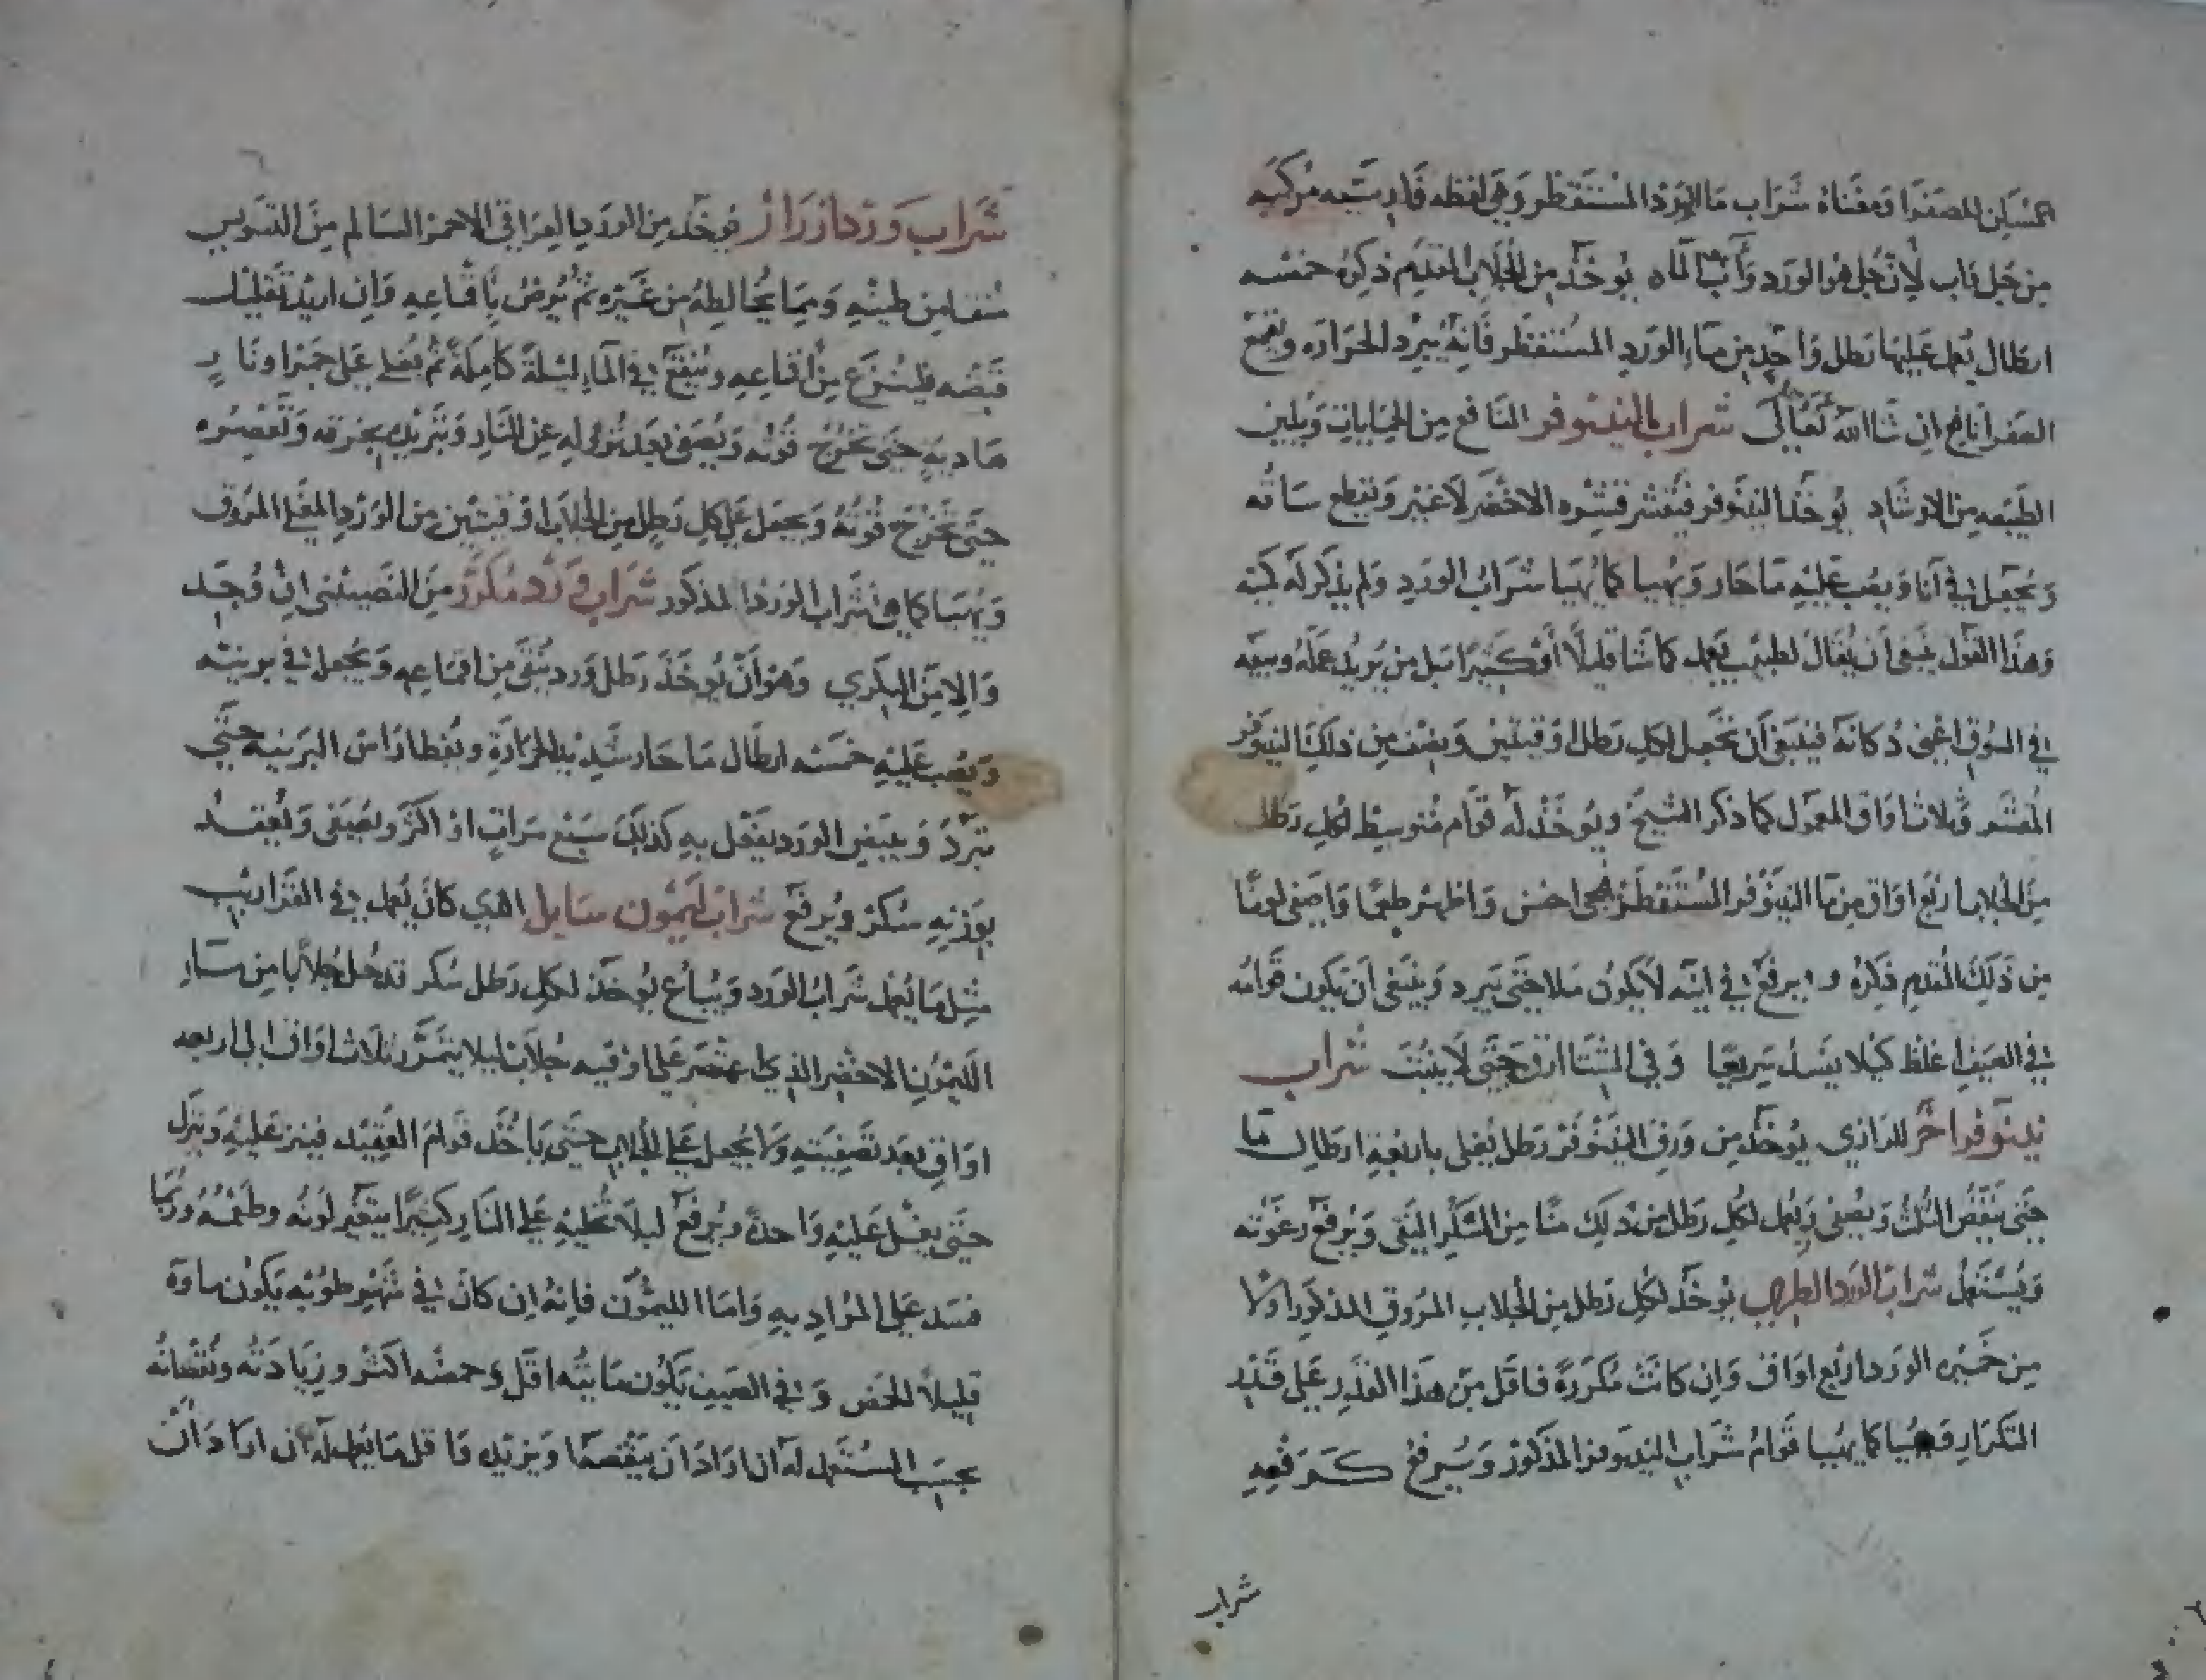 المسكن للصفرا ومعناه شراب ما الورد المستقطر وهي لفظه فارسيه مركبه
من جل واب لان جل هو الورد وآب الماء يوخذ من الجلاب المقدم ذكره خمسه
ارطال يعمل عليها رطل واحد من ماء الورد المستقطر فانه يبرد الحراره ويقمع
الصفرا نافع ان شا الله تعالى شراب النينوفر النافع من الحميات ويلين
الطبيعه من الارشاد يوخذ النينوفر فيقشر قشره الاخضر لا غير وتقطع ساقه
ويجعل في انا ويصب عليه ما حار ويهيا كما يهيا شراب الورد ولم يذكر له كميه
وهذا القول ينبغي ان يقال لطبيب يعمل كما شا قليلا او كثيرا بل من يريد عمله وبيعه
في السوق اعني دكانه فينبغي ان تجعل لكل رطل اوقيتين ونصف من ذلك النينوفر
المقشر وثلاث اواق المعمول كما ذكر الشيخ ويوخذ له قوام متوسط لكل رطل
من الجلاب اربع اواق من ما النينوفر المستقطر يجي احسن واظهر طعما واصفى لونا
من ذلك المقدم ذكره ويرفع في انيه لا يكون ملا حتى يبرد وينبغي ان يكون قوامه
في الصيف اغلظ كيلا يفسد سريعا وفي الشتا ارق حتى لا ينبت شراب
نينوفر اخر للرازي يوخذ من ورق النينوفر رطل يغلى باربعة ارطال ما
حتى ينقص الثلث ويصفى ويعمل لكل رطل من ذلك منا من السكر النقي ويرفع رغوته
ويستعمل شراب الورد الطري يوخذ لكل رطل من الجلاب المروق المذكور اولا
من خميره الورد اربع اواق وان كانت مكررة فاقل من هذا القدر على قدر
التكرار فيهيا كما يهيا قوام شراب النينوفر المذكور ويرفع كرفعه
شراب
شراب ورد ازرار يوخذ من الورد العراقي الاحمر السالم من التسويس
منقا من طينه ومما يخالطه من غيره ثم يرض باقماعه وان اريد تقليل
قبضه فلينزع من اقماعه وينقع في الماء ليلة كاملة ثم يغلى على جمر او نار
هاديه حتى تخرج قوته ويصفى بعد نزوله عن النار وتبريده بخرقه وتعصره
حتى تخرج قوته ويجعل على كل رطل من الجلاب اوقيتين من الورد المغلي المروق
ويهيا كما في شراب الورد المذكور شراب ورد مكرر من النصيبيني ان وجد
والا من البكري وهو ان يوخذ رطل ورد ينقى من اقماعه ويجعل في برنيه
ويصب عليه خمسه ارطال ما حار شديد الحرارة ويغطا راس البرنيه حتى
تبرد ويصفى الورد يفعل به كذلك سبع مرات او اكثر ويصفى ويعقد
بوزنه سكر ويرفع شراب ليمون سايل الذي كان يعمل في القرابيب
مثل ما يعمل شراب الورد ويباع يوخذ لكل رطل سكر قد حل جلابا من ساير
الليمون الاخضر الذي يعتصر على اوقيه جلاب ليلا يتمرر ثلاث اواق الى اربعه
اواق بعد تصفيته ولا يجعل على الجلاب حتى ياخذ قوام العقيد فينزعليه وينزل
حتى يغلى عليه واحدة ويرفع ليلا تخليه على النار كثيرا يتغير لونه وطعمه وربما
فسد على المراد به واما الليمون فانه ان كان في شهر طوبه يكون ماوه
قليل الحمض وفي الصيف يكون ماييته اقل وحمضه اكثر وزيادته ونقصانه
بحسب المستعمل له ان اراد ان ينقصها ويزيده واقل ما يعمل له ان اراد ان